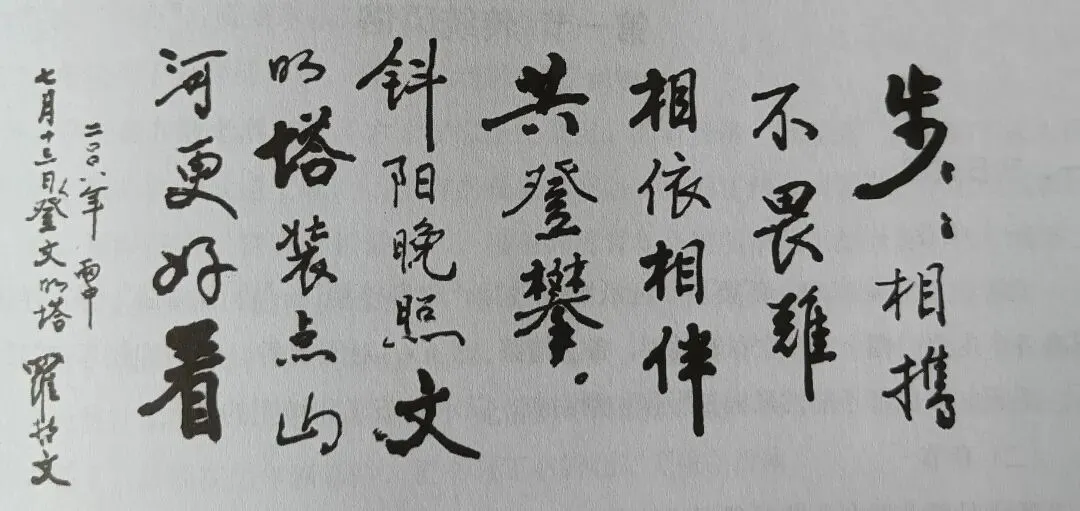 步々相携
不畏難
相依相伴
共登攀.
斜阳晚照文
明塔装点山
河更好看
二〇〇八年 雨中
七月十三日登文明塔 羅哲文